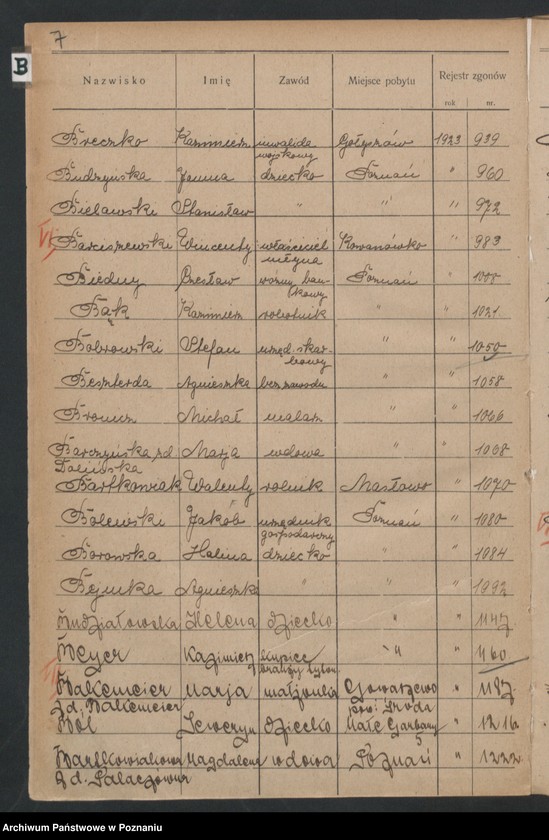 7
B
Nazwisko Imię Zawód Miejsce pobytu Rejestr zgonów
rok nr.
Breczko Kazimierz inwalida wojskowy 1923 939
Budzyńska Janina dziecko Poznań " 960
Bielawski Stanisław " " " 972
VI
Barciszewski Wincenty właściciel młyna Kowanówko " 983
Biedny Czesław woźny bankowy Poznań "
Bąk Kazimierz robotnik " " 1021
Bobrowski Stefan urzęd. skarbowy " " 1050
Beszterda Agnieszka bez zawodu " " 1058
Michał malarz " " 1066
Barczyńska zd. Marja wdowa " " 1068
Bartkowiak Walenty rolnik Masłowo " 1070
Bolewski Jakób urzędnik gospodarczy Poznań " 1080
Borowska Halina dziecko " " 1084
Agnieszka " " " 1092
Helena dziecko " " 1147
Beyer Kazimierz kupiec " " 1160
VII
Balkemeier Marja małżonka " 1187
z d. Balkemeier pow. Środa
Bol Seweryn dziecko Małe Garbary 5 " 1216
Bartkowiakowa Magdalena wdowa Poznań " 1222
z d.
Archiwum Państwowe w Poznaniu